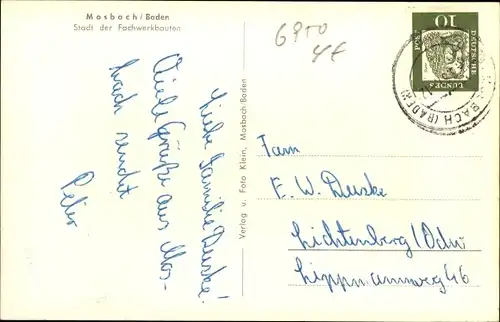 Mosbach/Baden
Stadt der Fachwerkbauten
6950
Liebe Familie Duske!
Viele Grüße aus Mos-
bach sendet
Peter
Verlag u. Foto Klein, Mosbach-Baden
10
DEUTSCHE
BUNDES
POST
BACH (BADEN)
Fam
E. W. Duske
Lichtenberg/Odw
Lippmannweg 46